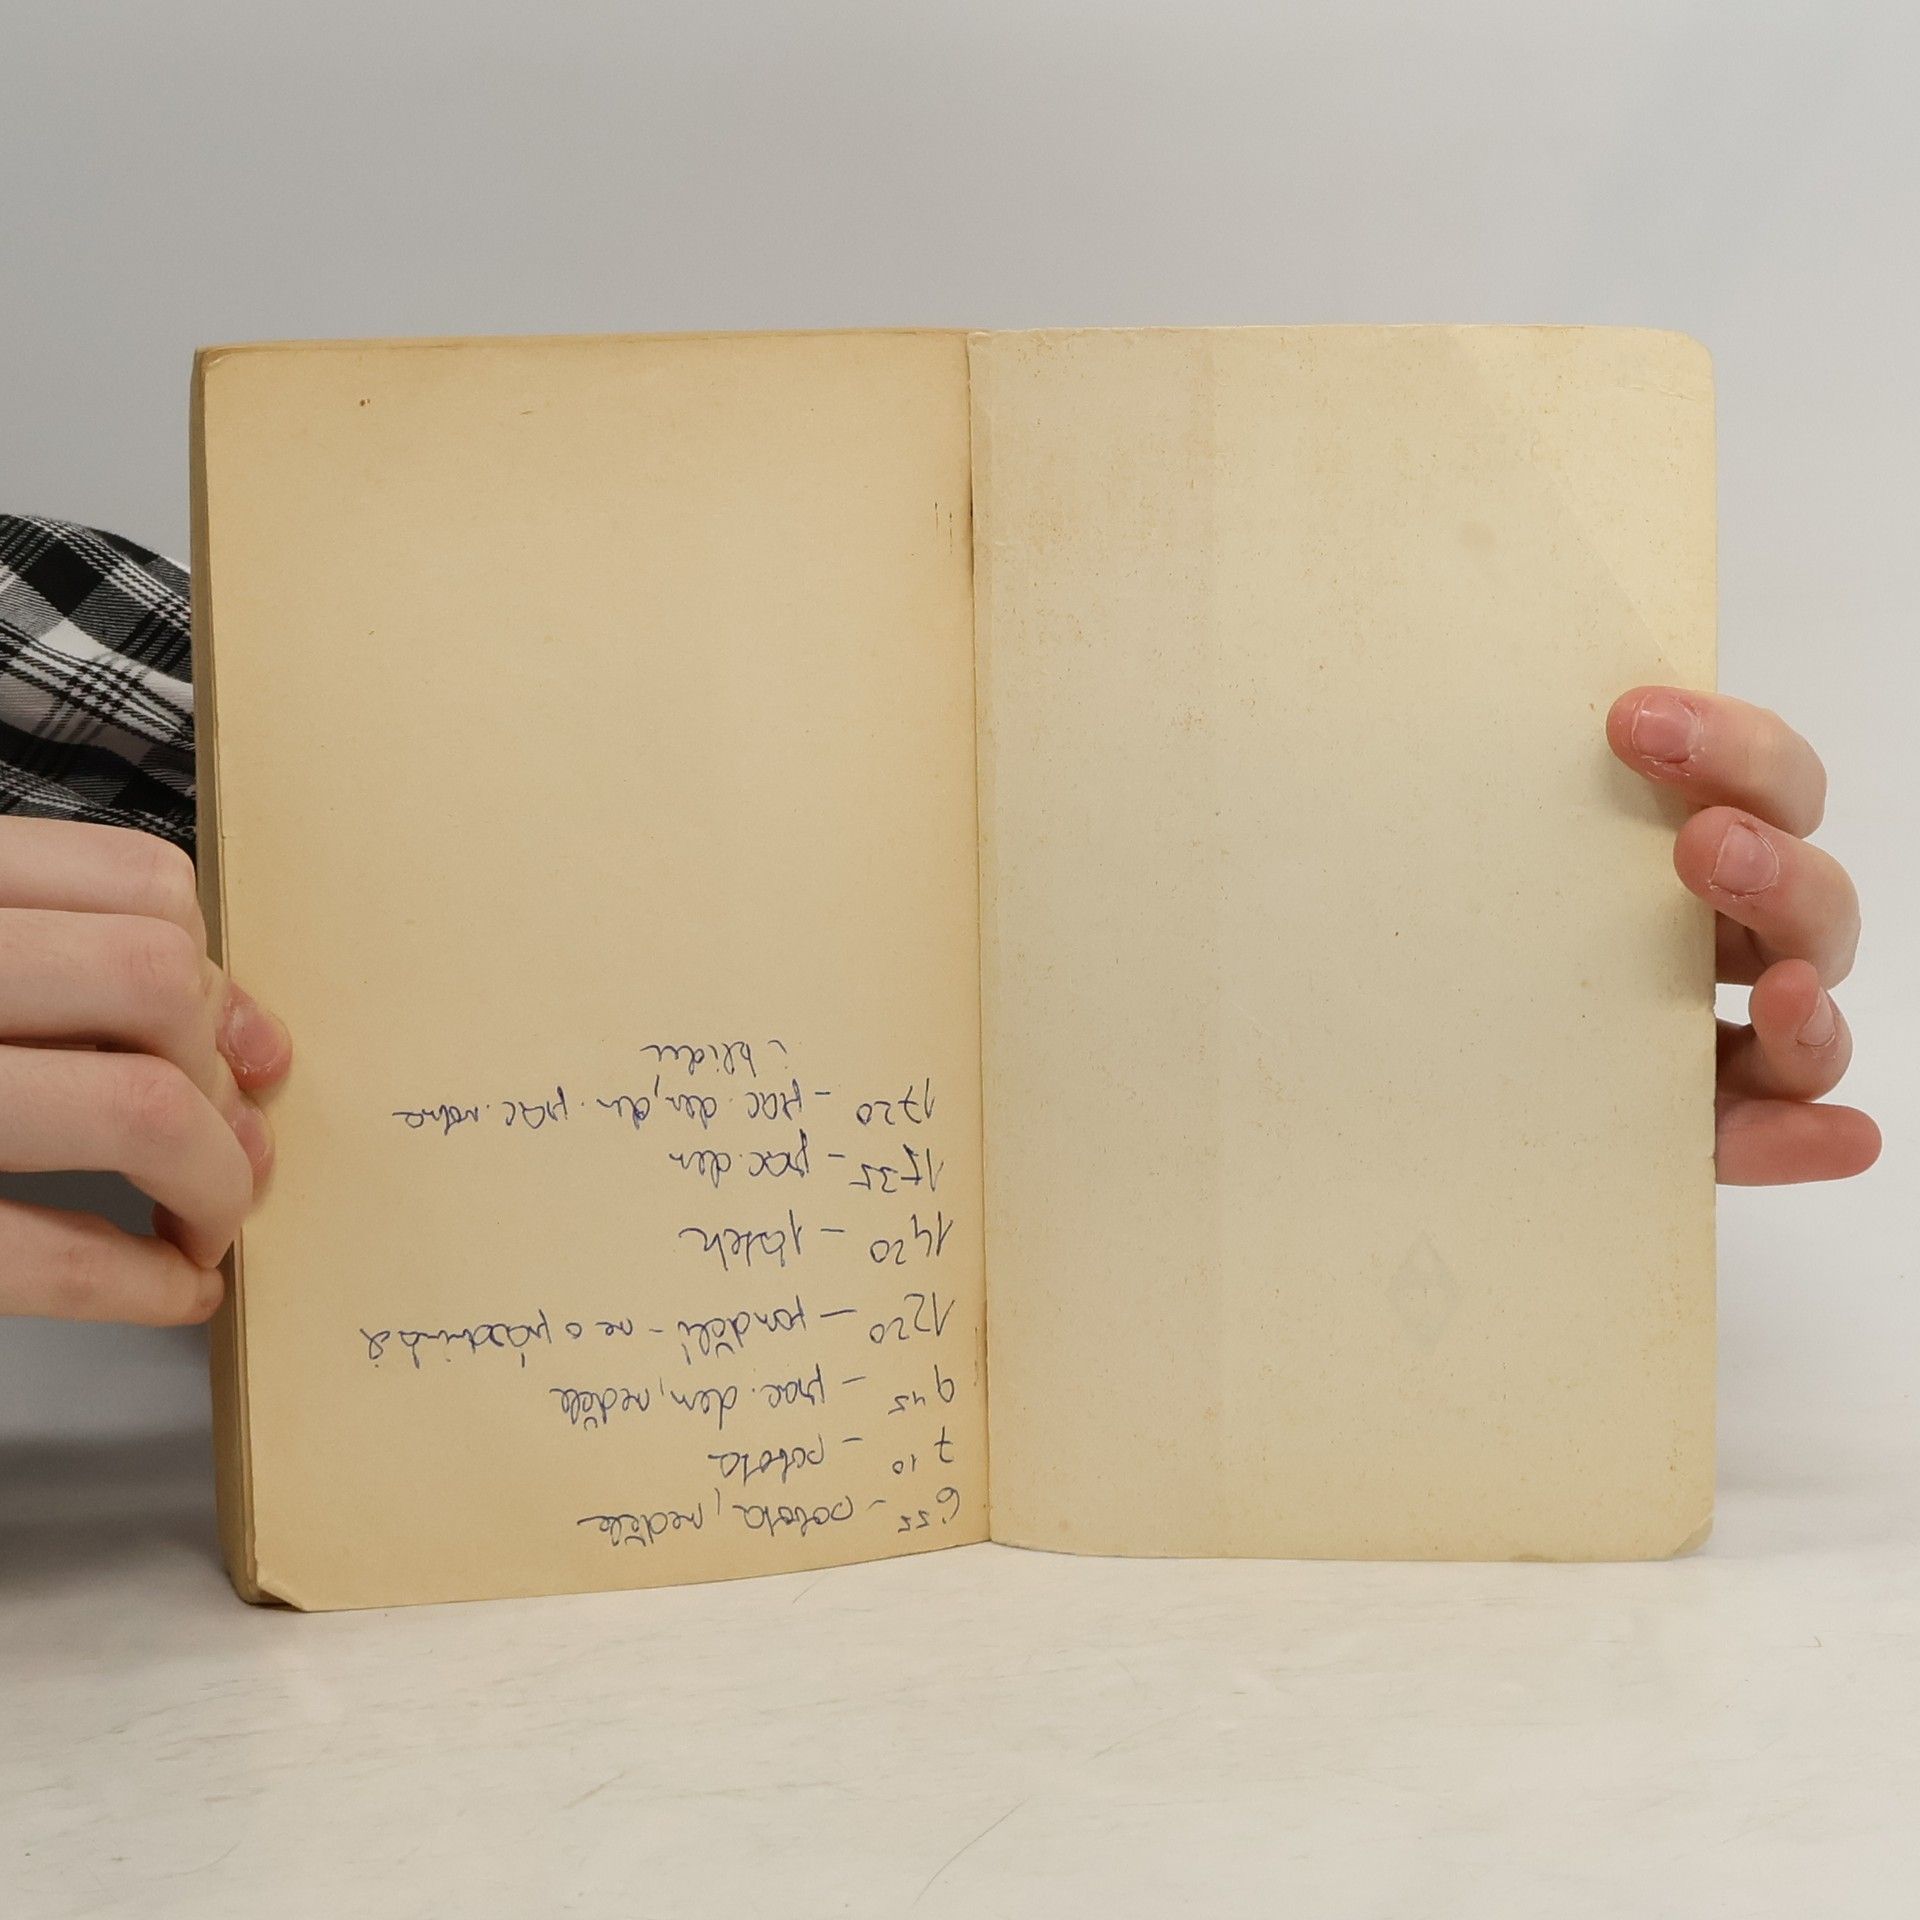 6.55 - sobota, neděle
7 10 - sobota
9 45 - prac. den, neděle
12 20 - pondělí - ne o prázdninách
14 20 - pátek
15 35 - prac. den
17 20 - prac. den, den prac. volna
i klidu